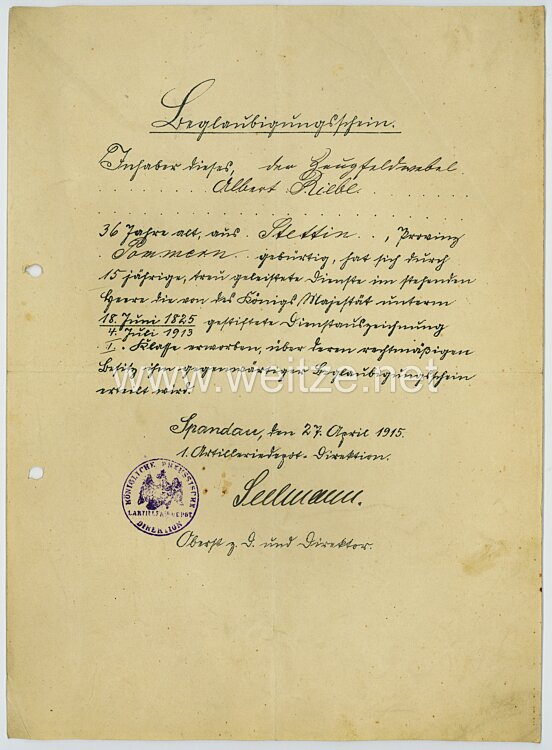 Beglaubigungsschein.
Inhaber dieses, der Zeugfeldwebel
Albert Riebe
36 Jahre alt, aus Stettin, Provinz
Pommern gebürtig, hat sich durch
15 jährige, treu geleistete Dienste im stehenden
Heere die von des Königs Majestät unterm
18. Juni 1825
4. Juli 1913 gestiftete Dienstauszeichnung
I. Klasse erworben, über deren rechtmäßigen
Besitz ihm gegenwärtiger Beglaubigungsschein
erteilt wird.
www.weitze.net
Spandau, den 27. April 1915.
1. Artilleriedepot-Direktion.
Seelmann.
Oberst z. D. und Direktor.
KÖNIGLICHE PREUSSISCHE
1. ARTILLERIEDEPOT
DIREKTION